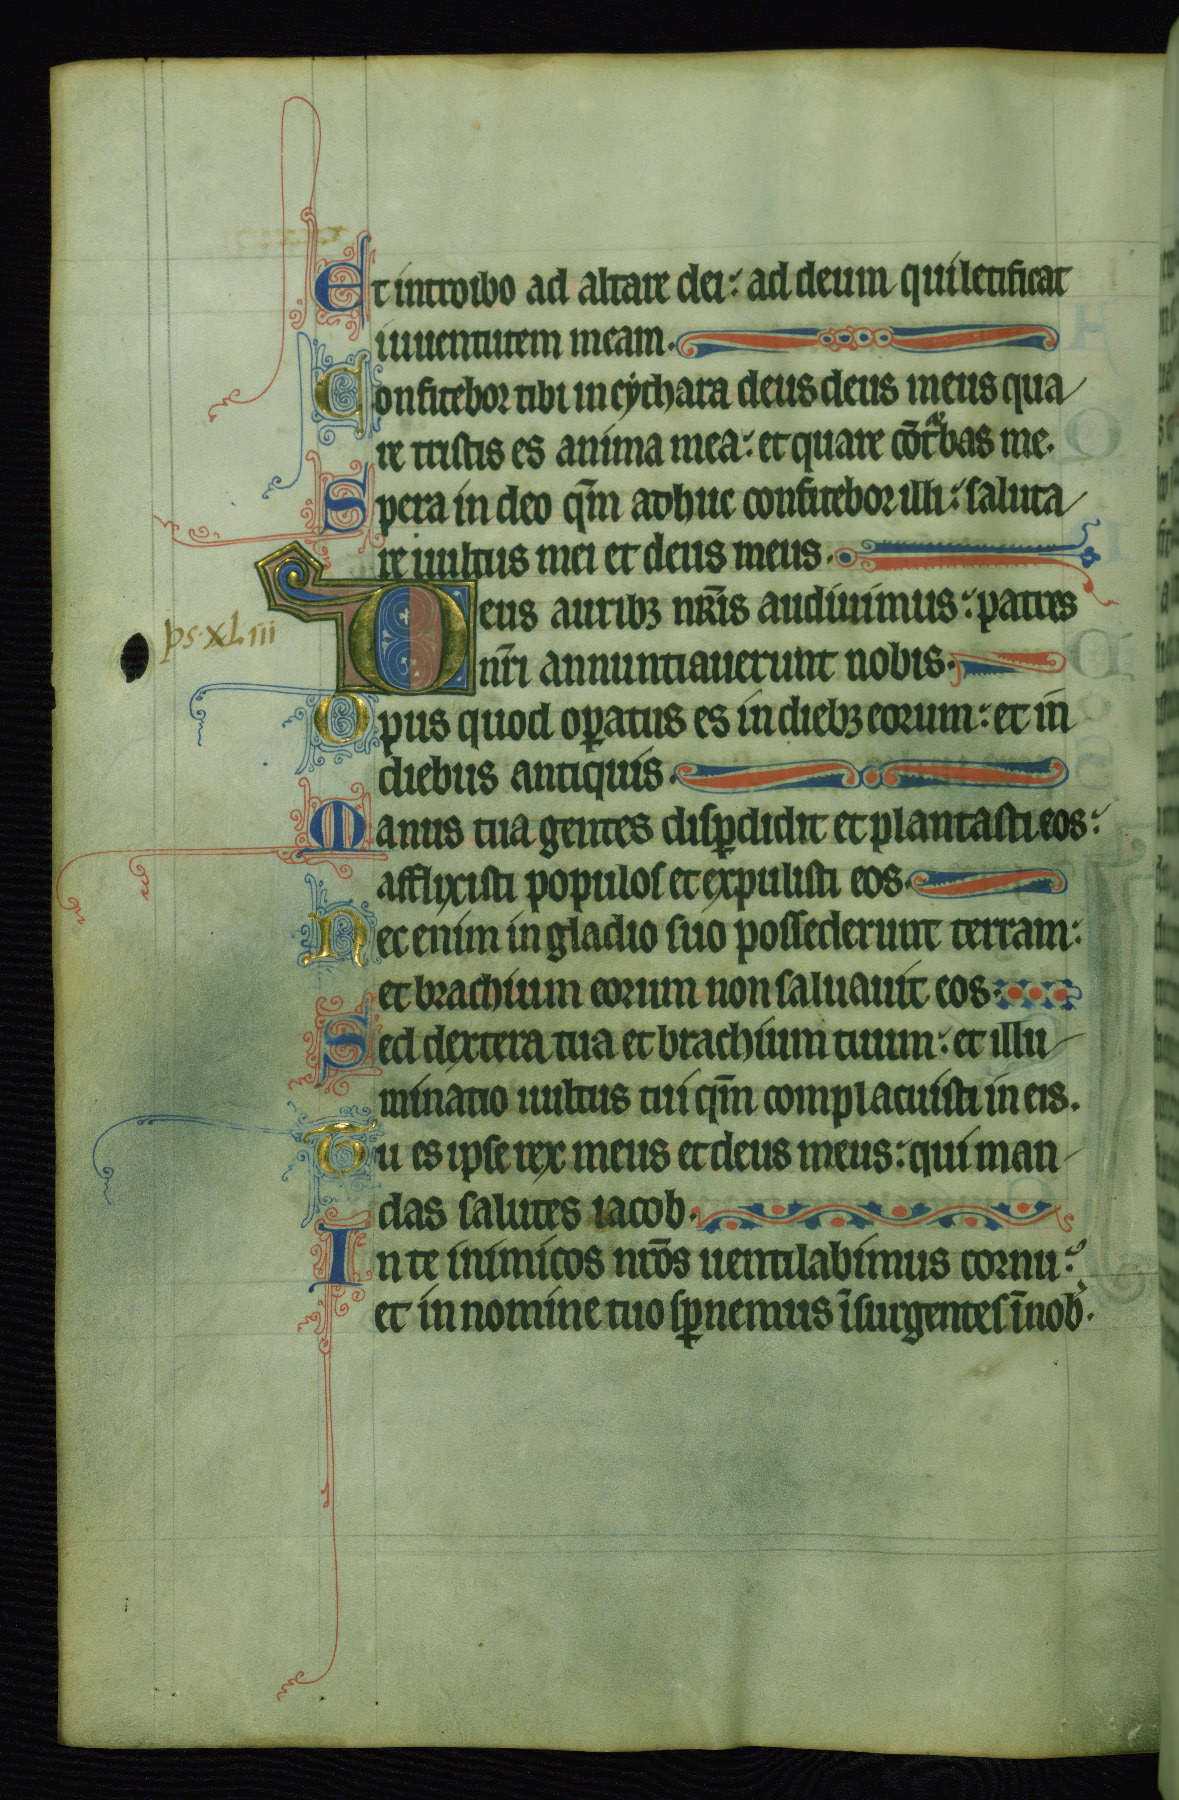 Et introibo ad altare dei: ad deum qui letificat
iuuentutem meam.
Confitebor tibi in cythara deus deus meus qua
re tristis es anima mea: et quare cōtͣbas me.
Spera in deo qm̄ adhuc confitebor illi: saluta
re uultus mei et deus meus.
Deus auribꝫ nr̄is audiuimus: patres
ps. XLiii
nr̄i annuntiauerunt nobis.
Opus quod oꝑatus es in diebꝫ eorum: et in
diebus antiquis.
Manus tua gentes disꝑdidit et plantasti eos:
afflixisti populos et expulisti eos.
Nec enim in gladio suo possederunt terram:
et brachium eorum non saluauit eos.
Sed dextera tua et brachium tuum: et illu
minatio uultus tui qm̄ complacuisti in eis.
Tu es ipse rex meus et deus meus: qui man
das salutes iacob.
In te inimicos nr̄os uentilabimus cornu:
et in nomine tuo sꝑnemus īsurgentes ī nob̾.